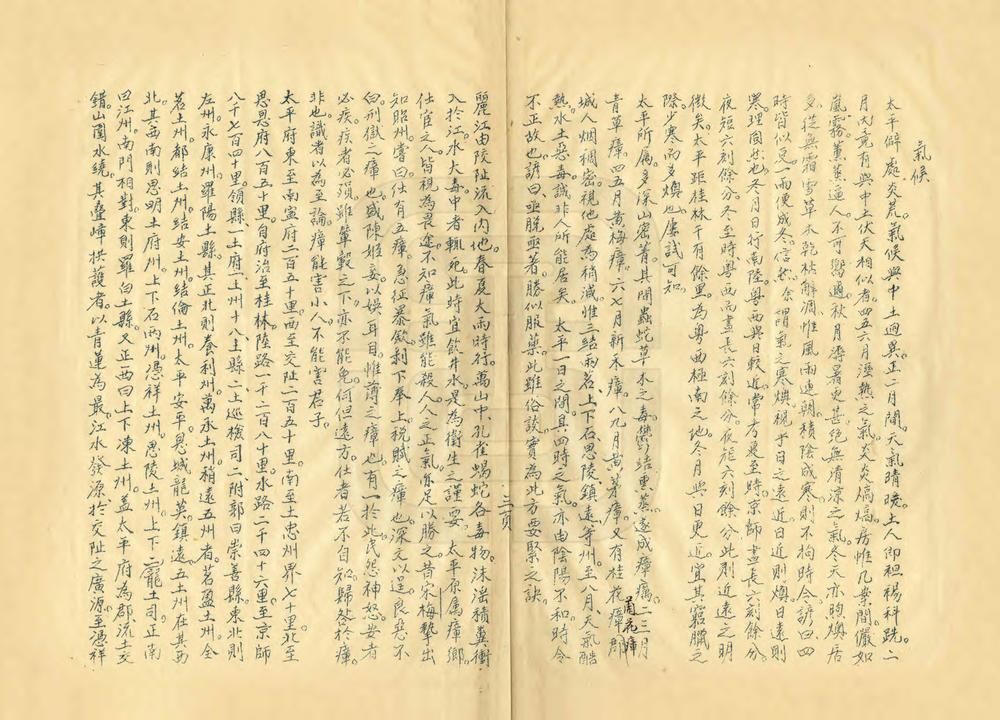 氣候
太平僻處炎荒氣候與中土迥異正二月間天氣晴暖土人即袒裼科跣二
月內竟有與中土伏天相似者四五六月溼熱之氣炎炎熇熇彷惟几案間儼如
嵐霧薰蒸逼人不可嚮邇秋月溽暑更甚絕無清涼之氣冬天亦煦燠居
多從無霜雪草木乾枯解凋惟風雨連朝積陰成寒則不拘時令諺曰四
時皆似夏一雨便成冬信然余謂氣之寒燠視乎日之遠近日近則燠日遠則
寒理固然也冬月日行南陸粵西與日較近常方夏至時京師晝長六刻餘分
夜短六刻餘分冬至時粵西高晝長六刻餘分夜短六刻餘分此則近遠之明
徵矣太平距桂林千有餘里為粵西極南之地冬月與日更近宜其窮臘之
際少寒而多燠也屢試可知
太平所屬多深山密菁其間蟲蛇草木之毒鬱結重蒸遂成瘴癘二三月
青草瘴四五月黃梅瘴六七月新禾瘴八九月黃茅瘴又有桂花瘴菊花瘴郡
城人烟稠密視他處為稍減惟三結兩茗上下石思陵鎮遠等州至八月天氣酷
熱水土惡毒誠非人所能居矣太平一日之間具四時之氣亦由陰陽不和時令
不正故也諺曰亟脫亟著勝似服藥此雖俗談實為此方要緊之訣
三頁
麗江由陵阯流入內地春夏大雨時行萬山中孔雀蝎蛇各毒物沫滛積糞衝
入於江水大毒中者輒死此時宜飲井水是為衛生之謹要太平原屬瘴鄉
仕宦之人皆視為畏途不知瘴氣雖能殺人人之正氣亦足以勝之昔宋梅摯出
知昭州嘗曰仕有五瘴急征暴斂剥下奉上稅賦之瘴也深文以逞良惡不
白刑獄之瘴也盛陳姬妾以娛耳目帷薄之瘴也有一於此民怨神怒安者
必疾疾者必殞雖輦轂之下亦不能免何但遠方仕者若不自知歸咎於瘴
非也識者以為至論瘴能害小人不能害君子
太平府東至南寧府二百五十里西至交阯二百五十里南至土忠州界七十里北至
思恩府八百五十里自府治至桂林陸路一千二百八十里水路二千四十六里至京師
八千七百四十里領縣一土府一土州十八土縣二土巡檢司二附郭曰崇善縣東北則
左州永康州羅陽土縣其正北則養利州萬承土州稍遠五州者茗盈土州全
茗土州都結土州結安土州結倫土州太平安平恩城龍英鎮遠五土州在其西
北其西南則思明土府州上下石兩州憑祥土州思陵土州上下二龍土司正南
曰江州南門相對東則羅白土縣又正西曰上下凍土州蓋太平府為郡流土交
錯山圍水繞其疊嶂拱護者以青蓮為最江水發源於交阯之廣源至憑祥